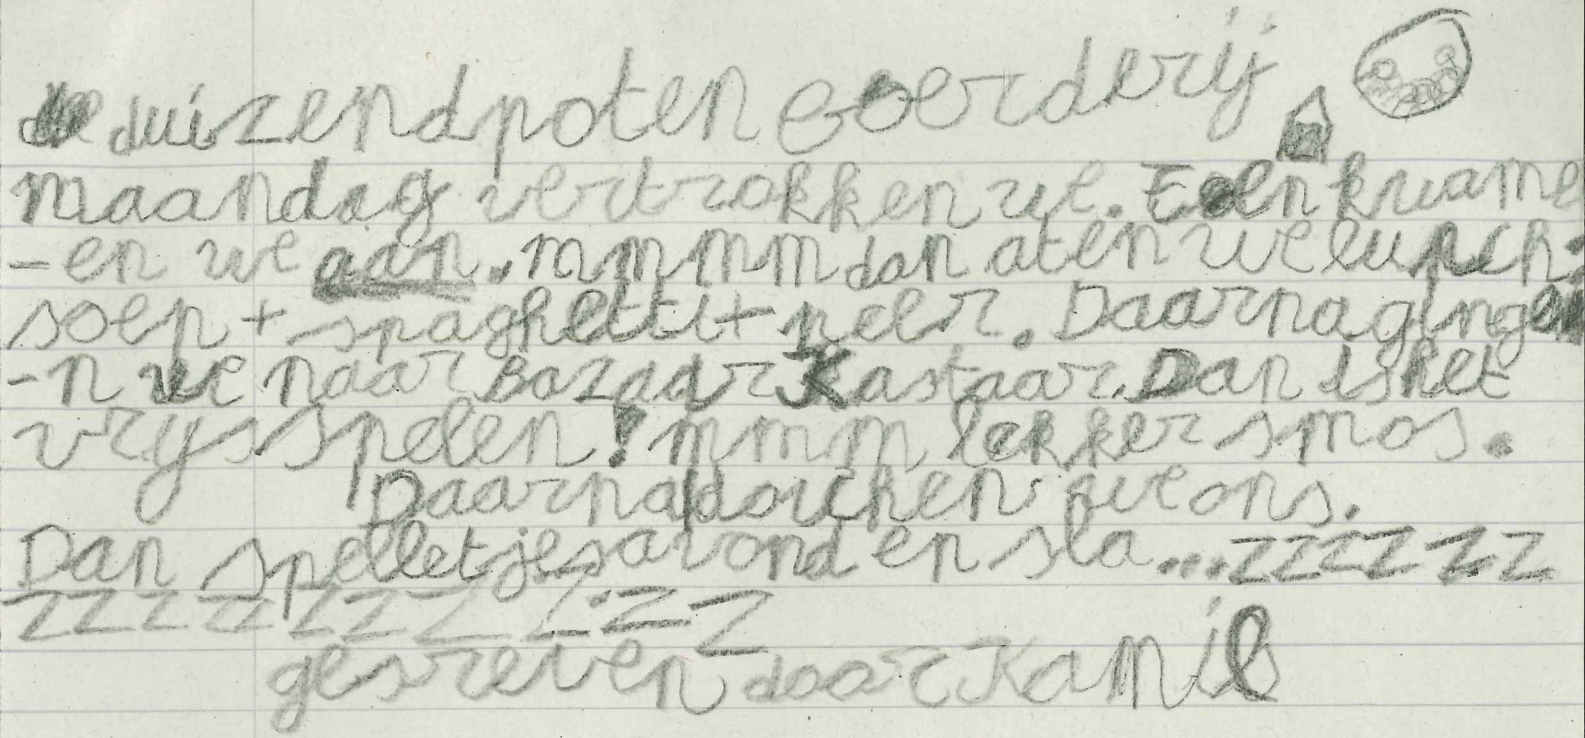 de duizendpoten boerderij
maandag vertrokken we. En kwame
-en we aan. mmmm dan aten we lunch:
soep + spaghetti + peer. Daarna ginge
-n we naar Bazaar Kastaar. Dan is het
vrys spelen! mmm lekker smos.
Daarna doichen we ons.
Dan spelletjesavond en sla...zzzzzz
zzzzzzzzzzz
gesreven door Kamil